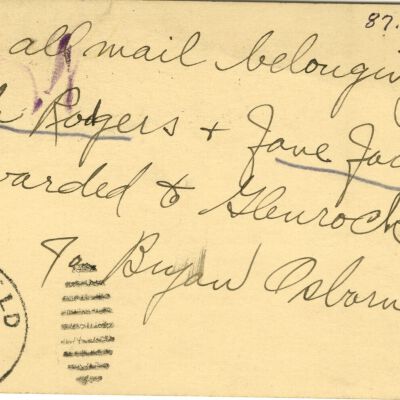 87.
all mail belonging
Rodgers + Jane Jac
warded to Glenrock
To Bryan Osborn
LD